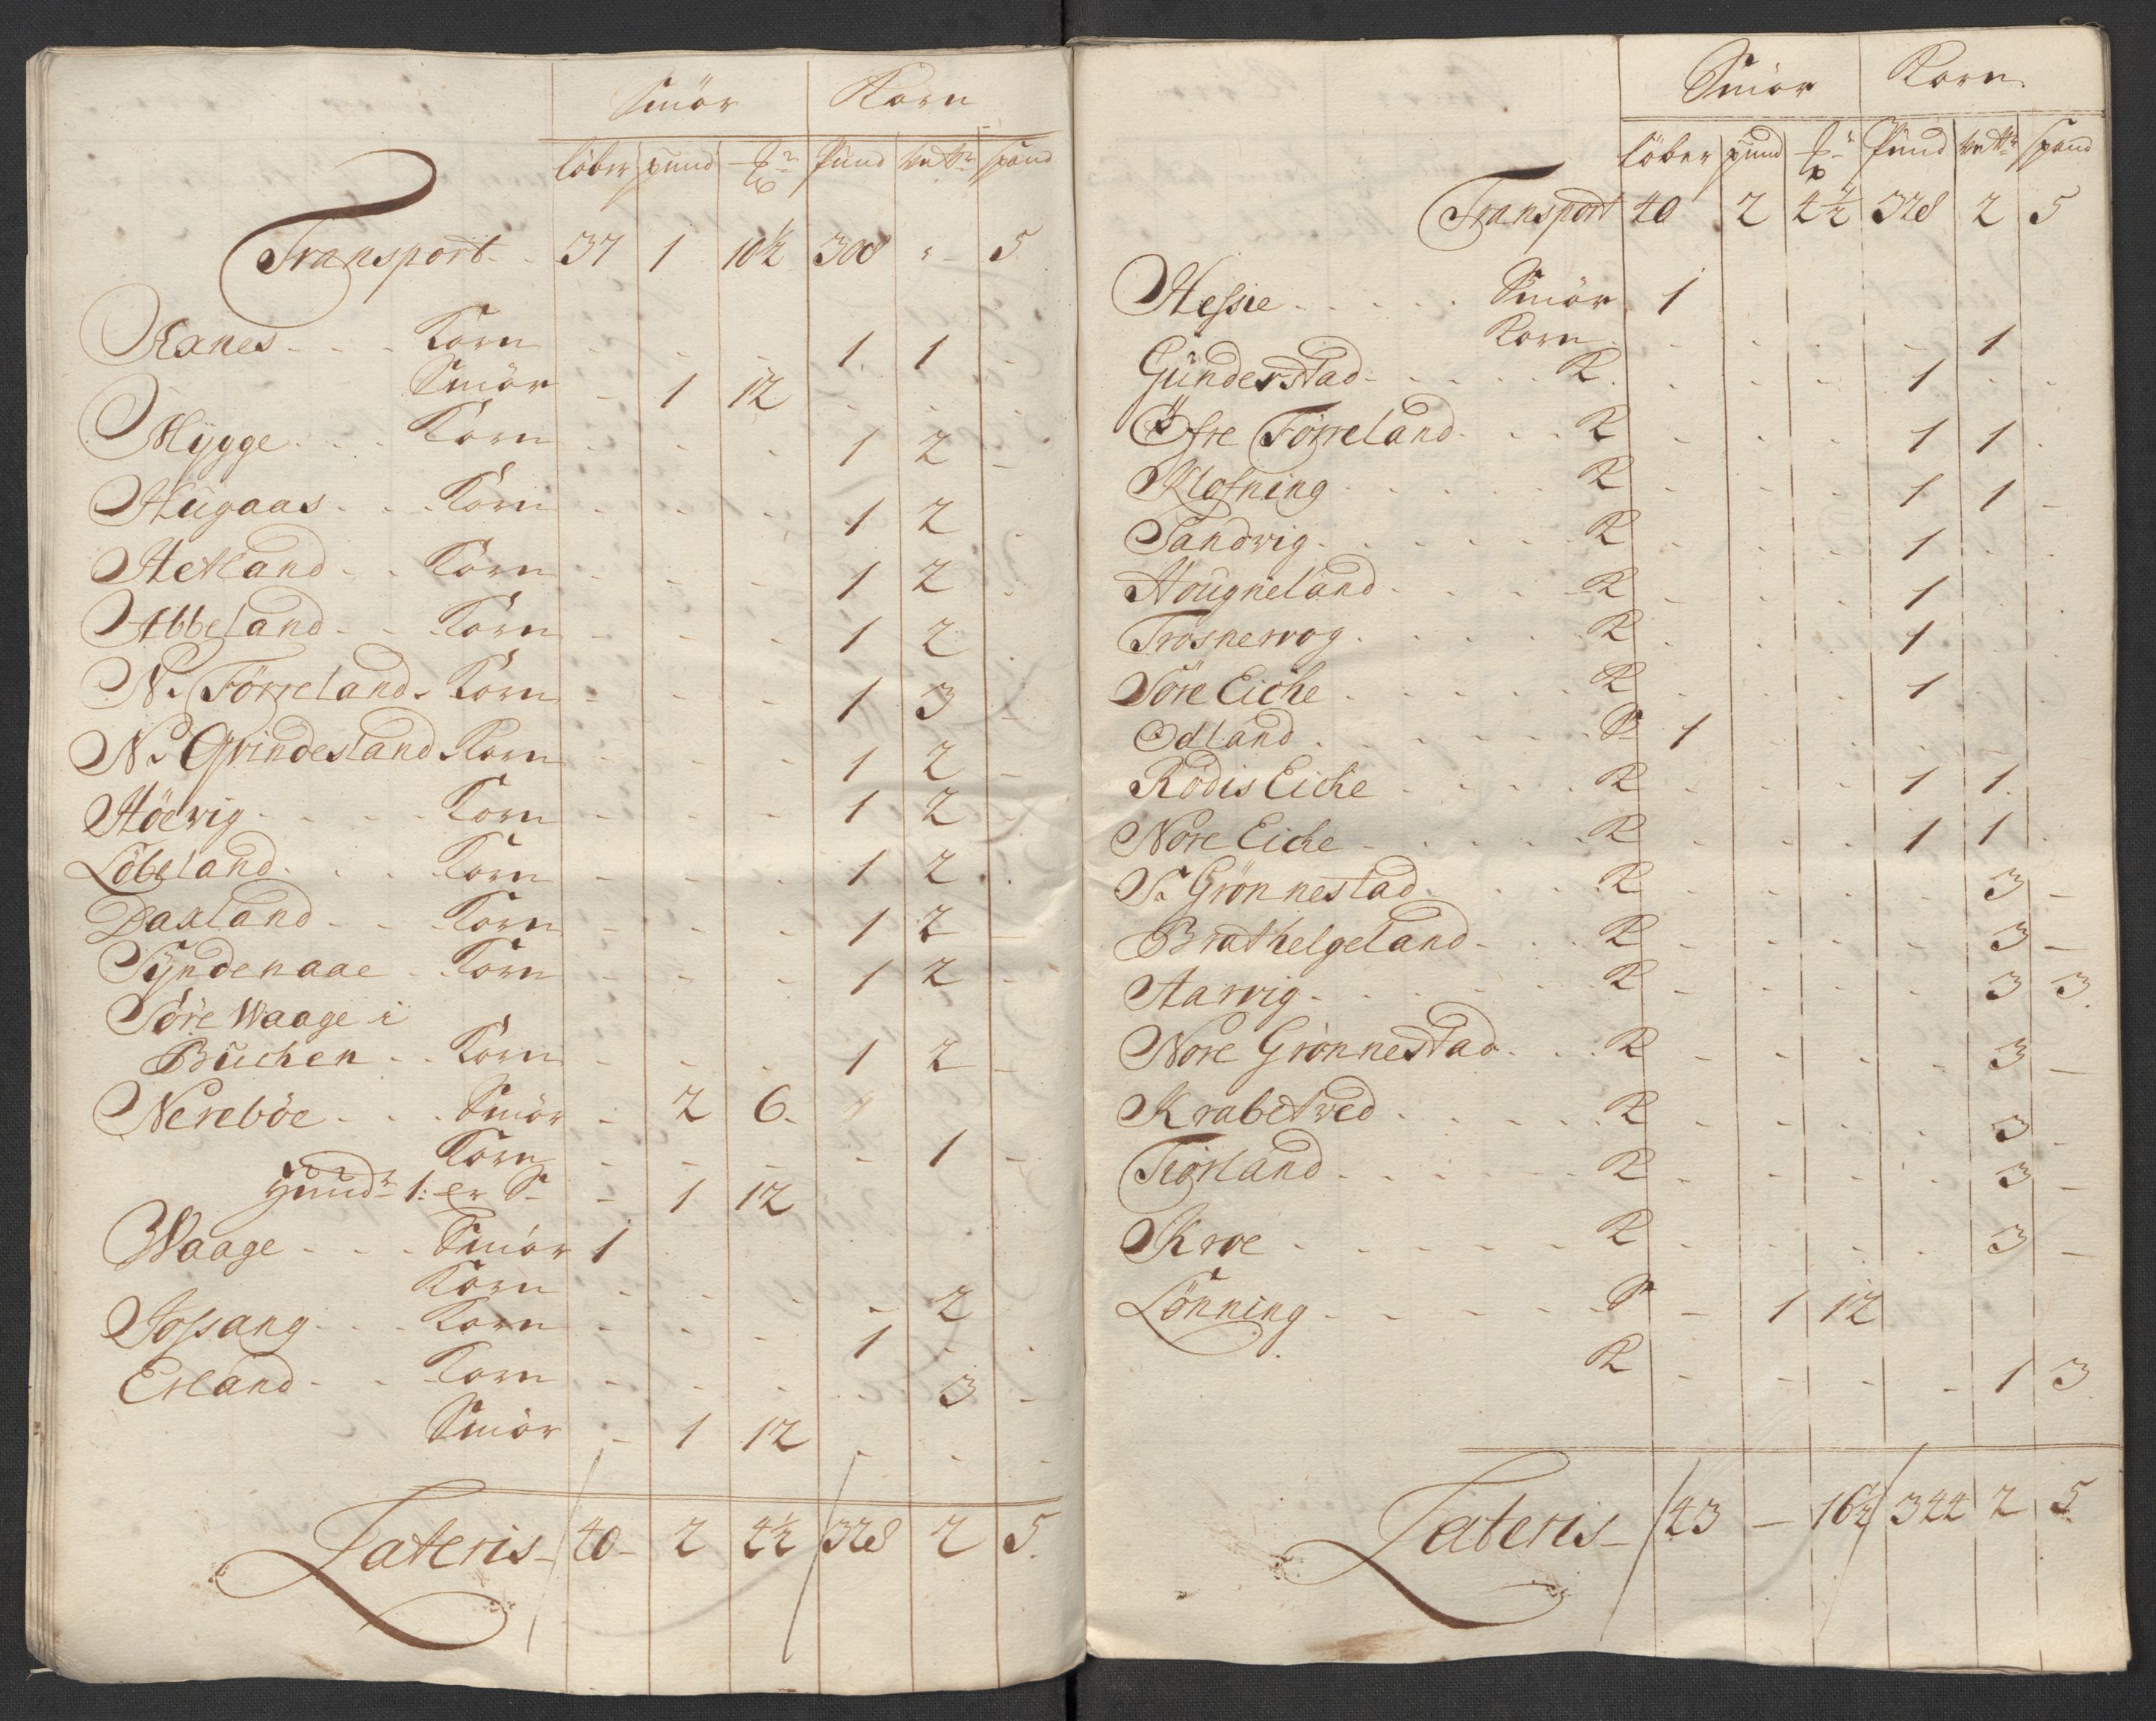 Smör Korn
löber pund Pund vett: spand
Transport 37 1 10½ 308 " 5
Axnes Korn 1 1
Smör 1 12
Mÿgge Korn 1 2
Hugaas Korn 1 2
Hetland Korn 1 2
Abbeland Korn 1 2
N. Förreland Korn 1 3
N. Grindesland Korn 1 2
Höevig Korn 1 2
Löbeland Korn 1 2
Daxland Korn 1 2
Tÿndenaae Korn 1 2
Söre Waage i
Buchen Korn 1 2
Nereböe Smör 2 6
Korn 1
Hund: 1: er S 1 12
Waage Smör 1
Korn 2
Jossang Korn 1
Erland Korn 3
Smör 1 12
Lateris 40 2 4½ 328 2 5
Smör Korn
löber pund Pund vett: spand
Transport 40 2 4½ 328 2 5
Hessie Smör 1
Korn 1
Gunderstad K 1
Öfre Förreland K 1 1
Klofning K 1 1
Sandvig K 1
Hougneland K 1
Trosnevog K 1
Söre Eiche K 1
Odland S 1
Rodis Eiche K 1 1
Nore Eiche K 1 1
S. Grönnestad K 3
Brathelgeland K 3
Aarvig K 3 3
Nore Grönnestad K 3
Krabetved K 3
Tiorland K 3
Kroe K 3
Lönning S 1 12
K 1 3
Lateris 43 – 16½ 344 2 5